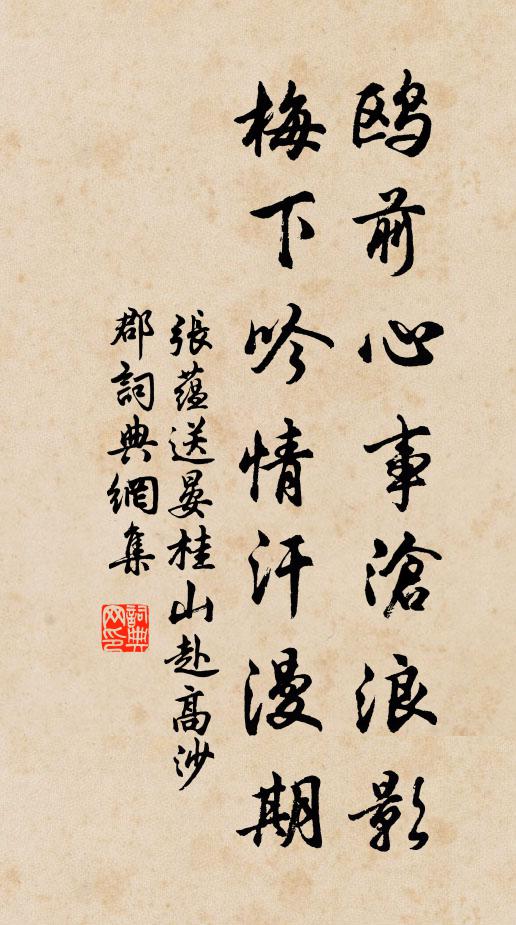 鷗前心事滄浪影
梅下吟情汗漫期
張蘊送晏桂山赴高沙
郡詞典網集
詞典网印